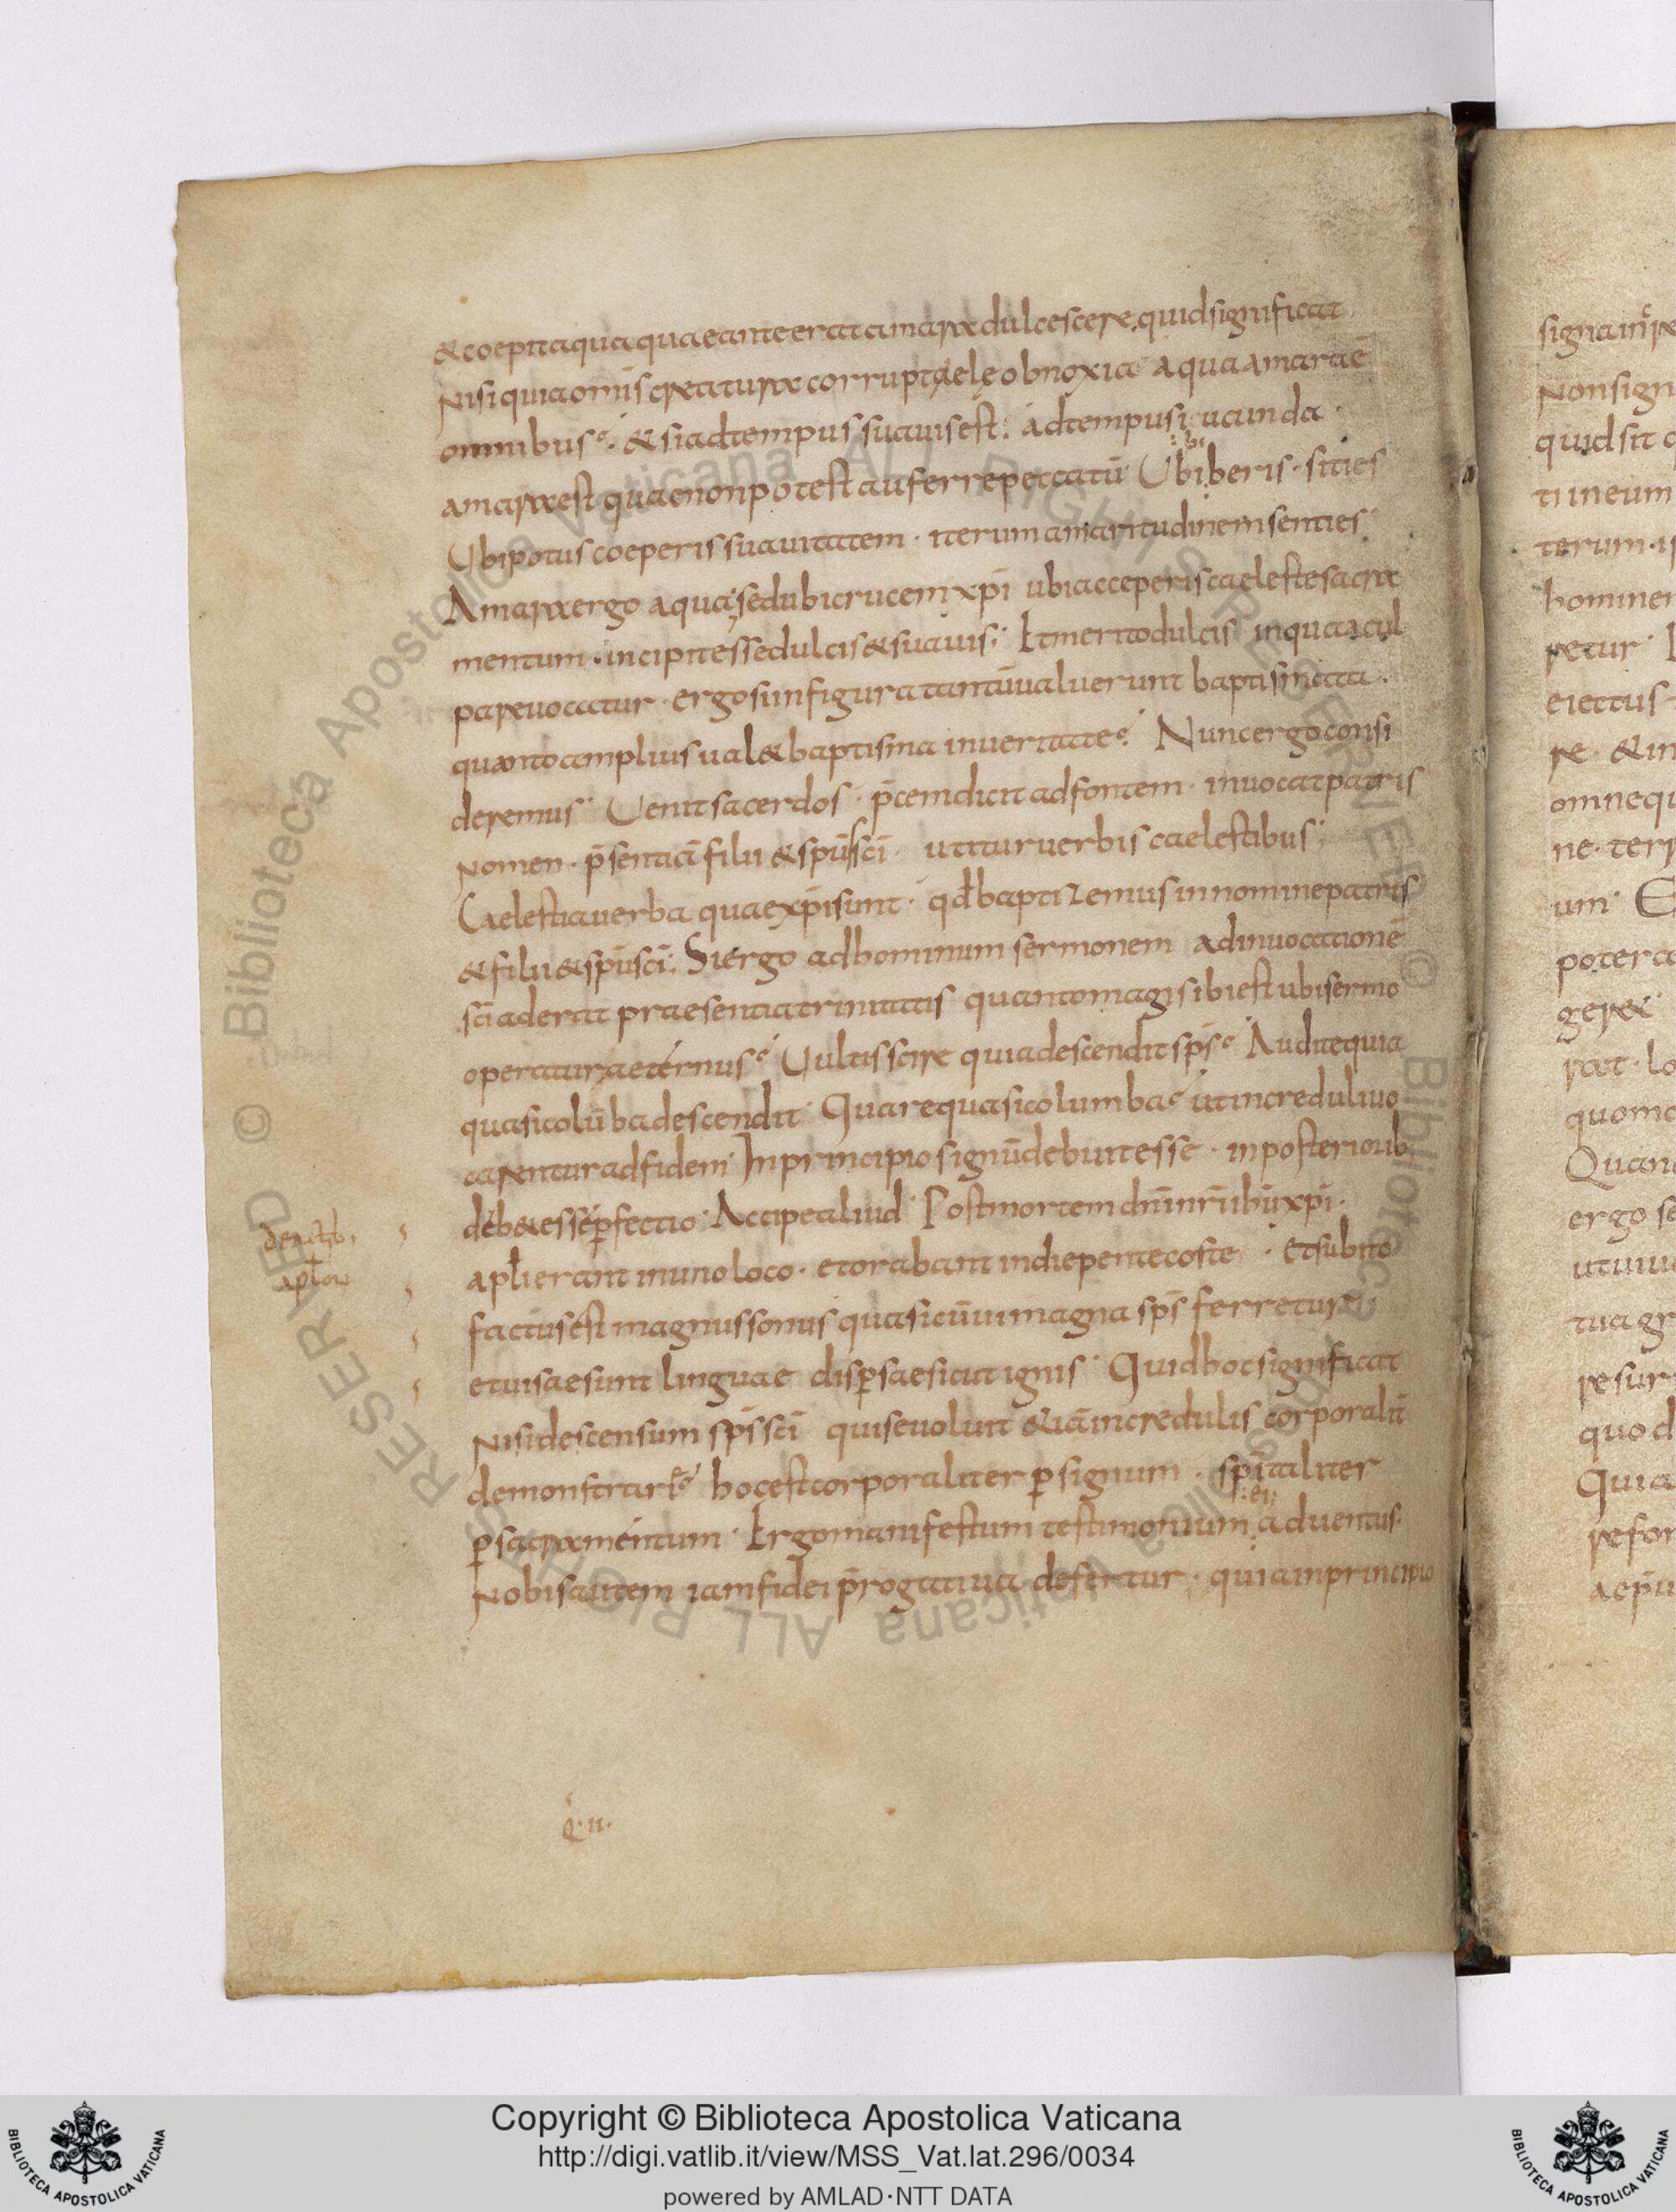 & coepit aqua quae ante erat amara dulcescere. quid significat
Nisi quia omis creatura corruptelę obnoxia aqua amara ē
omnibus. & si ad tempus suauis est. ad tempus iucunda.
amara est quae non potest auferre peccatū Ubi biberis. sities
Ubi potus coeperis suauitatem. iterum amaritudinem senties
Amara ergo aqua; sed ubi crucem xpi ubi acceperis caeleste sacra
mentum. incipit esse dulcis & suauis. Et merito dulcis in qua cul
pa reuocatur. ergo si in figura tantū ualuerunt baptismata.
quanto amplius ual& baptisma in ueritate. Nunc ergo consi
deremus Uenit sacerdos. p̄cem dicit ad fontem. inuocat patris
Nomen. p̄sentiā filii & spūs sc̄i. utitur uerbis caelestibus
Caelestia uerba quae xp̄i sunt. qd̄ baptizemus in nomine patris
& filii & spūs sc̄i; Si ergo ad hominum sermonem ad inuocationē
sc̄i aderat praesentia trinitatis quanto magis ibi est ubi sermo
operatur aeternus Uultis scire quia descendit sp̄s Audite quia
quasi colūba descendit Quare quasi columba ut increduli uo
carentur ad fidem In principio signū debuit esse. in posteriorib
deb& esse p̄fectio Accipe aliud Post mortem dn̄i nr̄i ihū xp̄i.
apl̄i erant in uno loco. et orabant in die pentecoste. et subito
factus est magnus sonus quasi cū ui magna sp̄s ferretur
et uisae sunt linguae dispersae sicut ignis Quid hoc significat
Nisi descensum sp̄s sc̄i qui se uoluit &iā incredulis corporalit̄
demonstrare hoc est corporaliter p signum. sp̄italiter
p sacramentum. Ergo manifestum testimonium ei aduentus.
Nobis autem iam fidei p̄rogatiua defertur. quia in principio
de actib;
apl̄orū
Q. II.
signa in
Non sign
quid sit
ti in eum
terum.
homine
retur
eiectus
re & in
omne qu
ne. ter
um
potera
gere
rat. lo
quomo
Quan
ergo se
utuiu
tua gr
resur
quod
Quia
refor
Copyright © Biblioteca Apostolica Vaticana
http://digi.vatlib.it/view/MSS_Vat.lat.296/0034
powered by AMLAD·NTT DATA
BIBLIOTECA APOSTOLICA VATICANA
BIBLIOTECA APOSTOLICA VATICANA
© Biblioteca Apostolica Vaticana ALL RIGHTS RESERVED